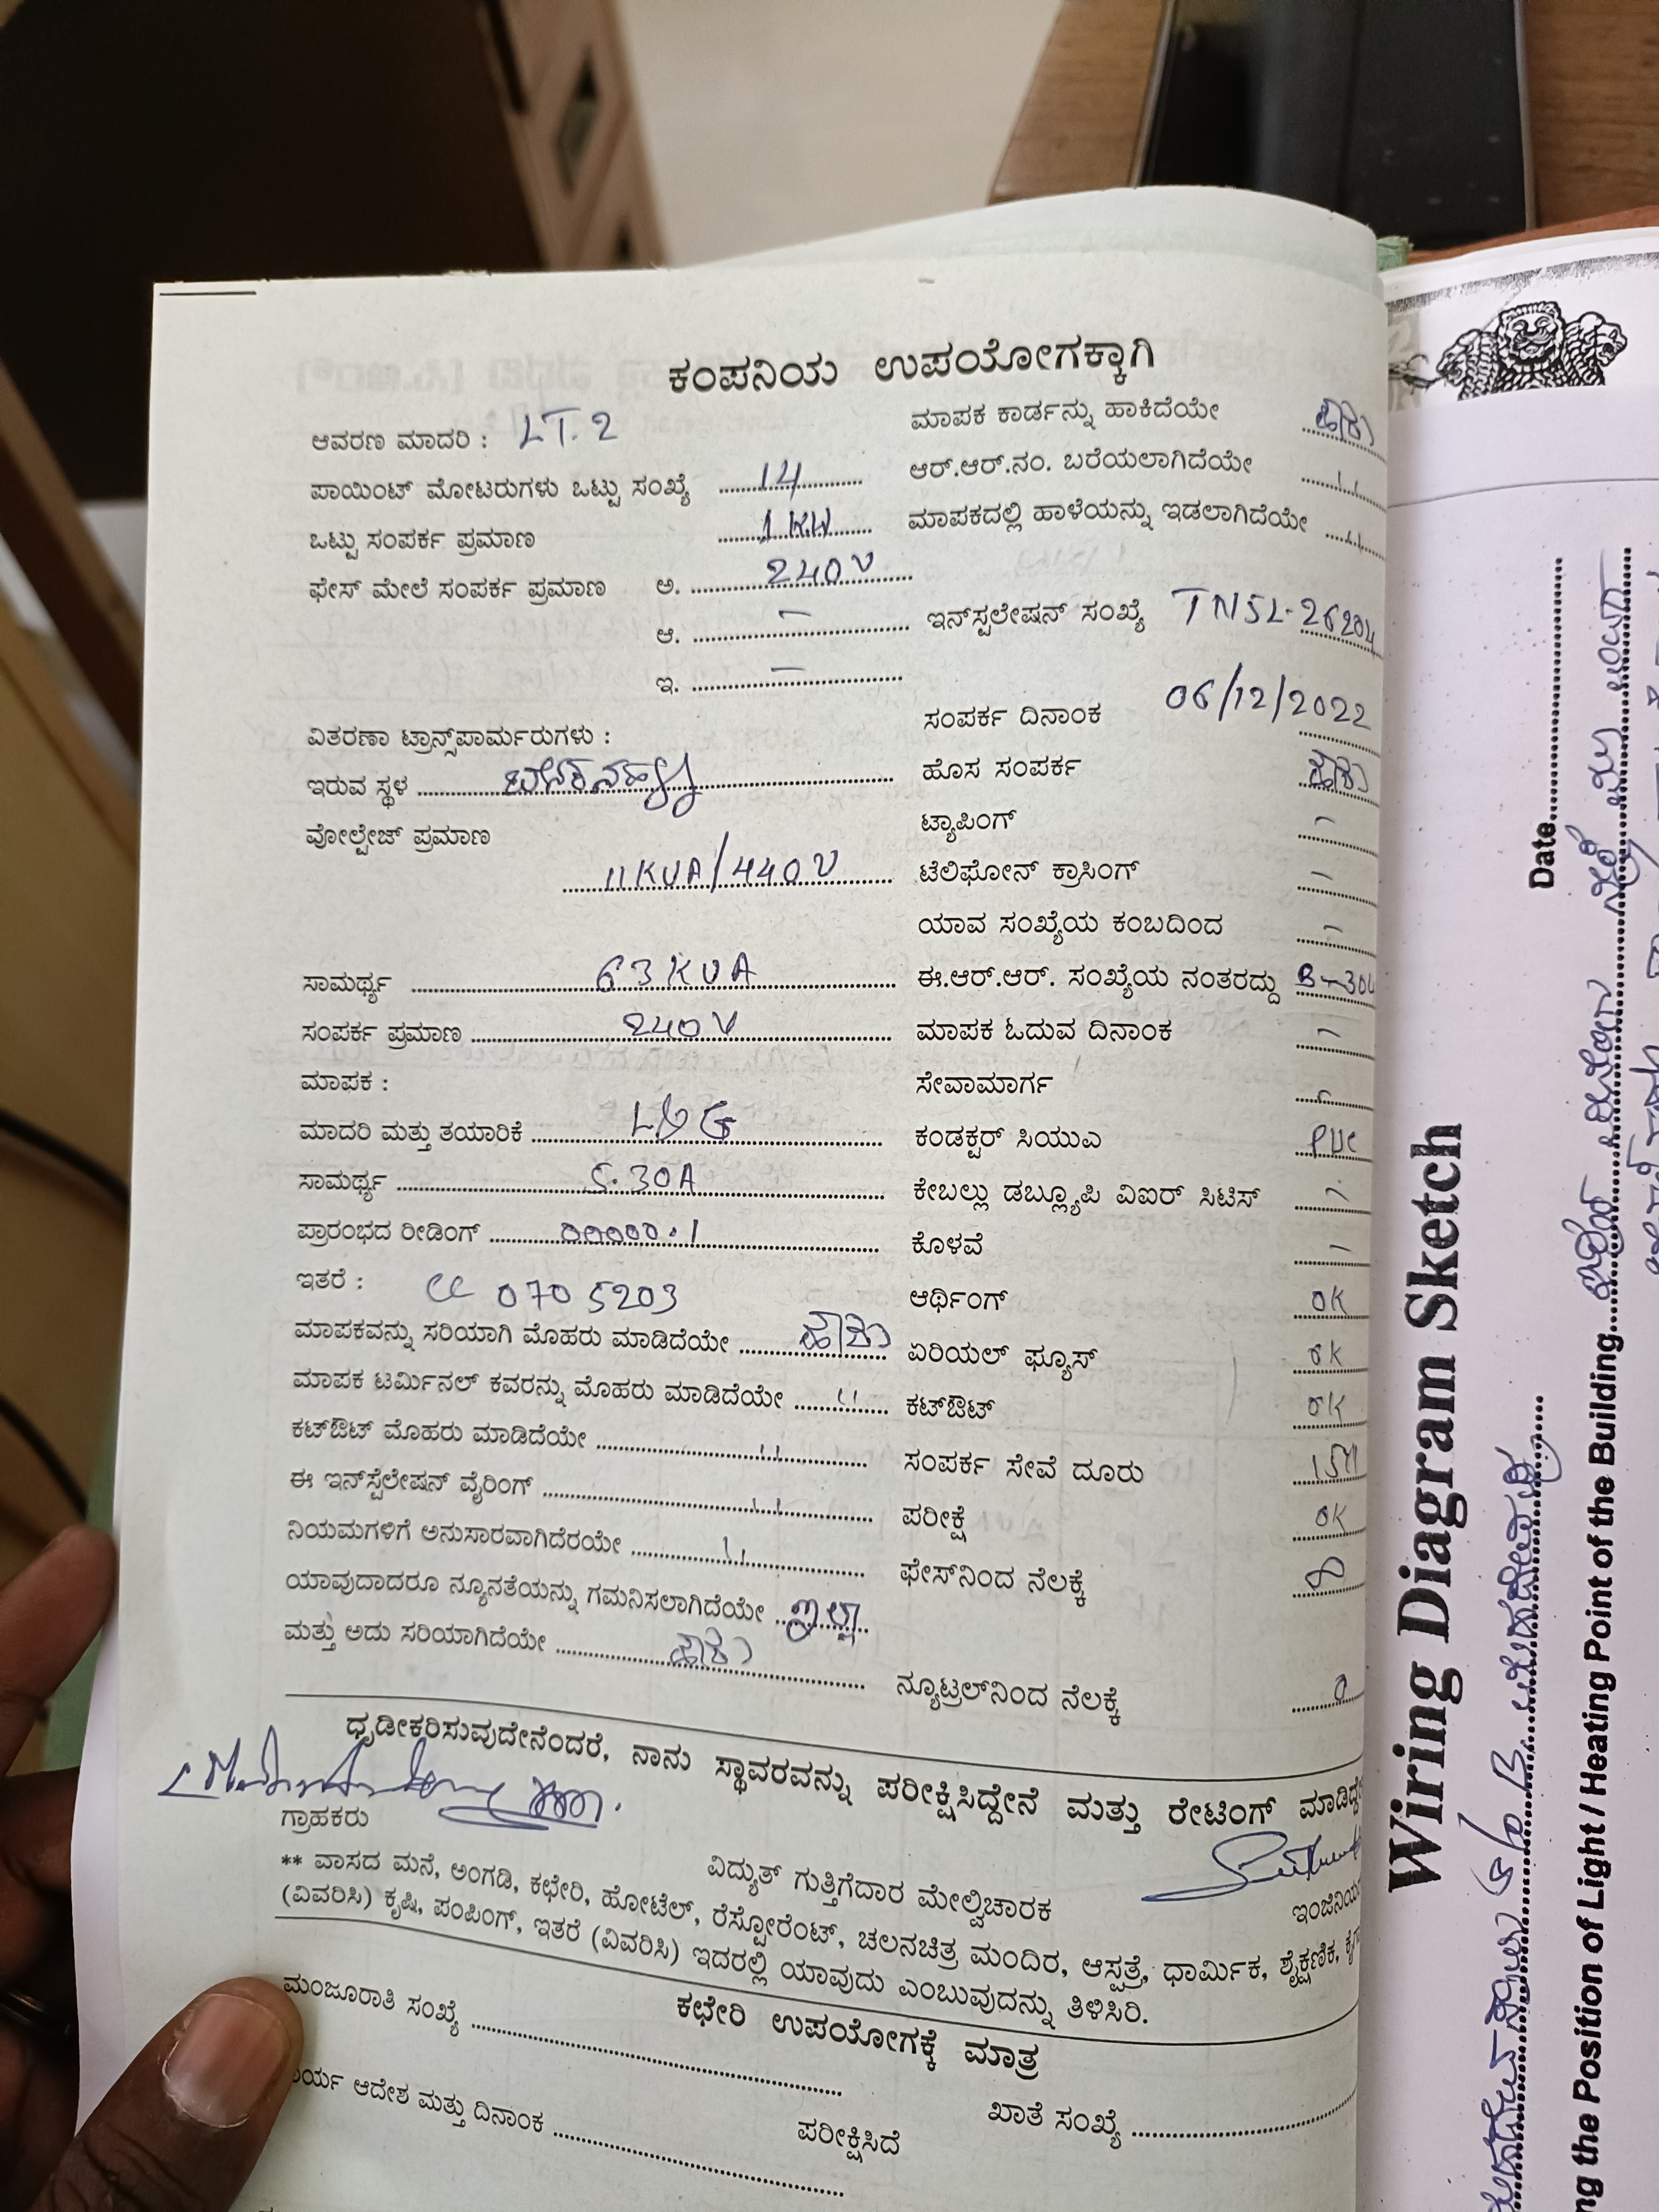 ಕಂಪನಿಯ ಉಪಯೋಗಕ್ಕಾಗಿ
ಆವರಣ ಮಾದರಿ : LT. 2
ಪಾಯಿಂಟ್ ಮೋಟರುಗಳು ಒಟ್ಟು ಸಂಖ್ಯೆ 14
ಒಟ್ಟು ಸಂಪರ್ಕ ಪ್ರಮಾಣ 1 KW
ಫೇಸ್ ಮೇಲೆ ಸಂಪರ್ಕ ಪ್ರಮಾಣ ಅ. 240 V
ಆ. –
ಇ. –
ವಿತರಣಾ ಟ್ರಾನ್ಸ್‌ಪಾರ್ಮರುಗಳು :
ಇರುವ ಸ್ಥಳ
ವೋಲ್ಟೇಜ್ ಪ್ರಮಾಣ
11 KVA/440 V
ಸಾಮರ್ಥ್ಯ 63 KVA
ಸಂಪರ್ಕ ಪ್ರಮಾಣ 240 V
ಮಾಪಕ :
ಮಾದರಿ ಮತ್ತು ತಯಾರಿಕೆ L&G
ಸಾಮರ್ಥ್ಯ 5-30A
ಪ್ರಾರಂಭದ ರೀಡಿಂಗ್ 00000.1
ಇತರೆ : CC 0705203
ಮಾಪಕವನ್ನು ಸರಿಯಾಗಿ ಮೊಹರು ಮಾಡಿದೆಯೇ ಹೌದು
ಮಾಪಕ ಟರ್ಮಿನಲ್ ಕವರನ್ನು ಮೊಹರು ಮಾಡಿದೆಯೇ 〃
ಕಟ್‌ಔಟ್ ಮೊಹರು ಮಾಡಿದೆಯೇ 〃
ಈ ಇನ್‌ಸ್ಟಲೇಷನ್ ವೈರಿಂಗ್ 〃
ನಿಯಮಗಳಿಗೆ ಅನುಸಾರವಾಗಿದೆರಯೇ 〃
ಯಾವುದಾದರೂ ನ್ಯೂನತೆಯನ್ನು ಗಮನಿಸಲಾಗಿದೆಯೇ ಇಲ್ಲ
ಮತ್ತು ಅದು ಸರಿಯಾಗಿದೆಯೇ ಹೌದು
ಮಾಪಕ ಕಾರ್ಡನ್ನು ಹಾಕಿದೆಯೇ ಹೌದು
ಆರ್.ಆರ್.ನಂ. ಬರೆಯಲಾಗಿದೆಯೇ 〃
ಮಾಪಕದಲ್ಲಿ ಹಾಳೆಯನ್ನು ಇಡಲಾಗಿದೆಯೇ 〃
ಇನ್‌ಸ್ಟಲೇಷನ್ ಸಂಖ್ಯೆ TNSL-26204
ಸಂಪರ್ಕ ದಿನಾಂಕ 06/12/2022
ಹೊಸ ಸಂಪರ್ಕ ಹೌದು
ಟ್ಯಾಪಿಂಗ್ –
ಟೆಲಿಫೋನ್ ಕ್ರಾಸಿಂಗ್ –
ಯಾವ ಸಂಖ್ಯೆಯ ಕಂಬದಿಂದ –
ಈ.ಆರ್.ಆರ್. ಸಂಖ್ಯೆಯ ನಂತರದ್ದು B-304
ಮಾಪಕ ಓದುವ ದಿನಾಂಕ –
ಸೇವಾಮಾರ್ಗ –
ಕಂಡಕ್ಟರ್ ಸಿಯುಎ PVC
ಕೇಬಲ್ಲು ಡಬ್ಲ್ಯೂಪಿ ವಿಐರ್ ಸಿಟಿಸ್ –
ಕೊಳವೆ –
ಆರ್ಥಿಂಗ್ OK
ಏರಿಯಲ್ ಫ್ಯೂಸ್ OK
ಕಟ್‌ಔಟ್ OK
ಸಂಪರ್ಕ ಸೇವೆ ದೂರು 15M
ಪರೀಕ್ಷೆ OK
ಫೇಸ್‌ನಿಂದ ನೆಲಕ್ಕೆ ∞
ನ್ಯೂಟ್ರಲ್‌ನಿಂದ ನೆಲಕ್ಕೆ 0
ಧೃಡೀಕರಿಸುವುದೇನೆಂದರೆ, ನಾನು ಸ್ಥಾವರವನ್ನು ಪರೀಕ್ಷಿಸಿದ್ದೇನೆ ಮತ್ತು ರೇಟಿಂಗ್
ಗ್ರಾಹಕರು
ವಿದ್ಯುತ್ ಗುತ್ತಿಗೆದಾರ ಮೇಲ್ವಿಚಾರಕ
** ವಾಸದ ಮನೆ, ಅಂಗಡಿ, ಕಛೇರಿ, ಹೋಟೆಲ್, ರೆಸ್ಟೋರೆಂಟ್, ಚಲನಚಿತ್ರ ಮಂದಿರ, ಆಸ್ಪತ್ರೆ, ಧಾರ್ಮಿಕ, ಶೈಕ್ಷಣಿಕ,
(ವಿವರಿಸಿ) ಕೃಷಿ, ಪಂಪಿಂಗ್, ಇತರೆ (ವಿವರಿಸಿ) ಇದರಲ್ಲಿ ಯಾವುದು ಎಂಬುವುದನ್ನು ತಿಳಿಸಿರಿ.
ಕಛೇರಿ ಉಪಯೋಗಕ್ಕೆ ಮಾತ್ರ
ಮಂಜೂರಾತಿ ಸಂಖ್ಯೆ
ಖಾತೆ ಸಂಖ್ಯೆ
ಆದೇಶ ಮತ್ತು ದಿನಾಂಕ
ಪರೀಕ್ಷಿಸಿದೆ
Wiring Diagram Sketch
Date
the Position of Light / Heating Point of the Building